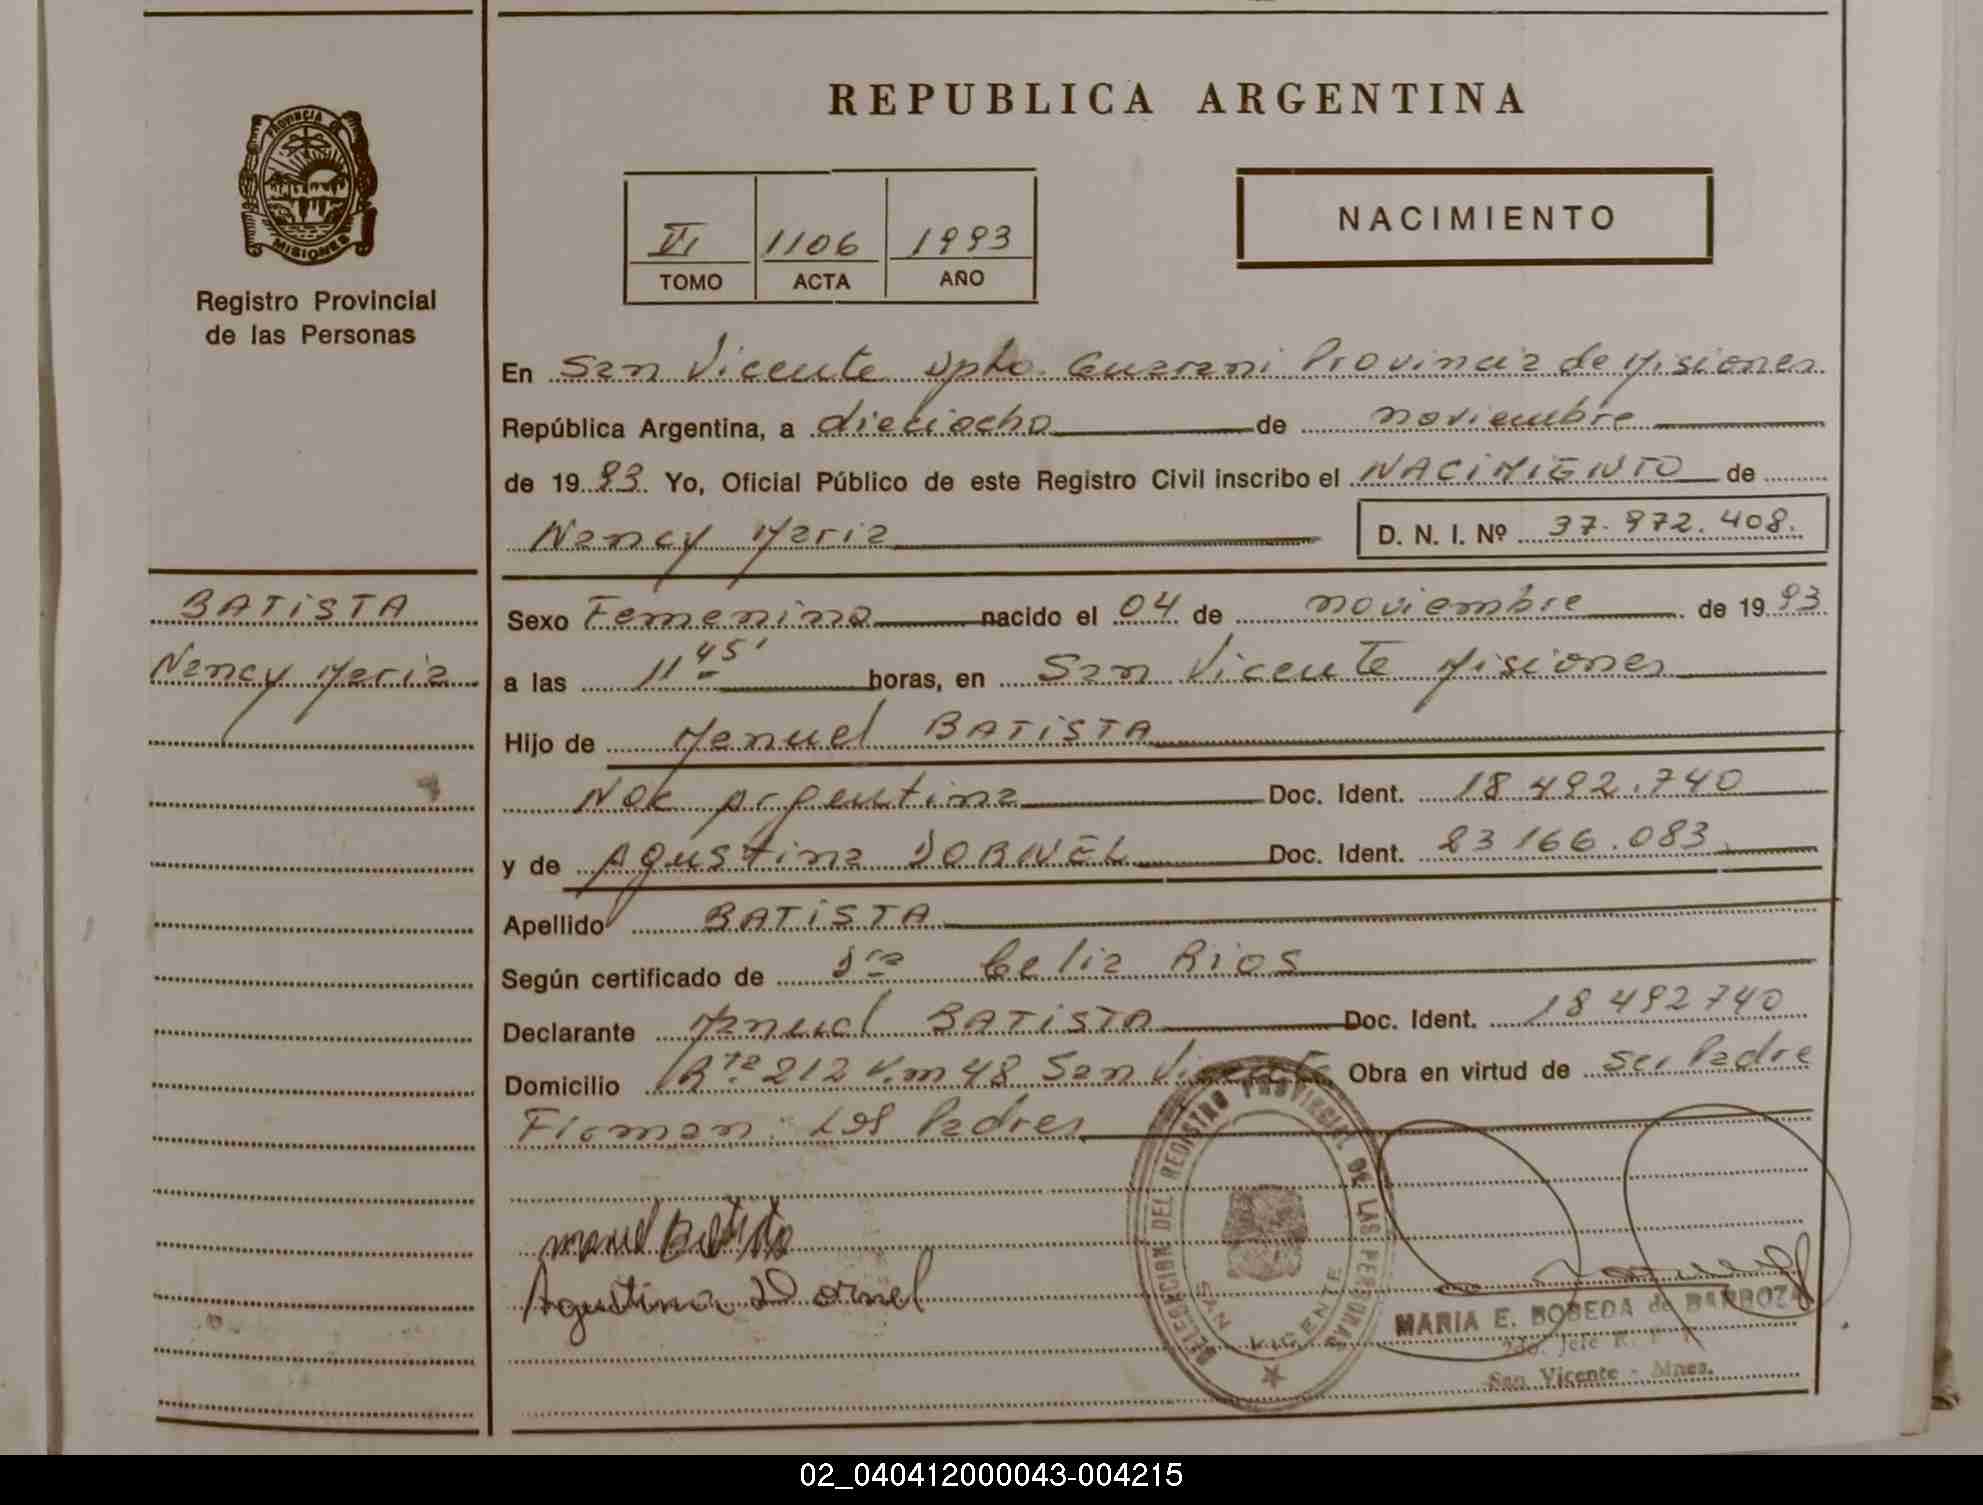 REPUBLICA ARGENTINA
PROVINCIA DE
MISIONES
Registro Provincial
de las Personas
VI 1106 1993
TOMO ACTA AÑO
NACIMIENTO
En San Vicente Dpto. Guarani Provincia de Misiones
República Argentina, a dieciocho de noviembre
de 1993 Yo, Oficial Público de este Registro Civil inscribo el NACIMIENTO de
Nancy Maria D. N. I. Nº 37.972.408.
BATISTA
Nancy Maria
Sexo Femenino nacido el 04 de noviembre de 1993
a las 11 45' horas, en San Vicente Misiones
Hijo de Manuel BATISTA
Nac Argentina Doc. Ident. 18 492.740
y de Agustina DORNEL Doc. Ident. 23 166.083
Apellido BATISTA
Según certificado de Dra Celia Rios
Declarante Manuel BATISTA Doc. Ident. 18 492 740
Domicilio Rta. 212 Km 48 San Vicente Obra en virtud de ser Padre
Firman: Los Padres
manuel Batista
Agustina Dornel
DELEGACION DEL REGISTRO PROVINCIAL DE LAS PERSONAS
SAN VICENTE
MARIA E. BOBEDA de BARROZA
2do. Jefe R. P. P.
San Vicente - Mnes.
02_040412000043-004215